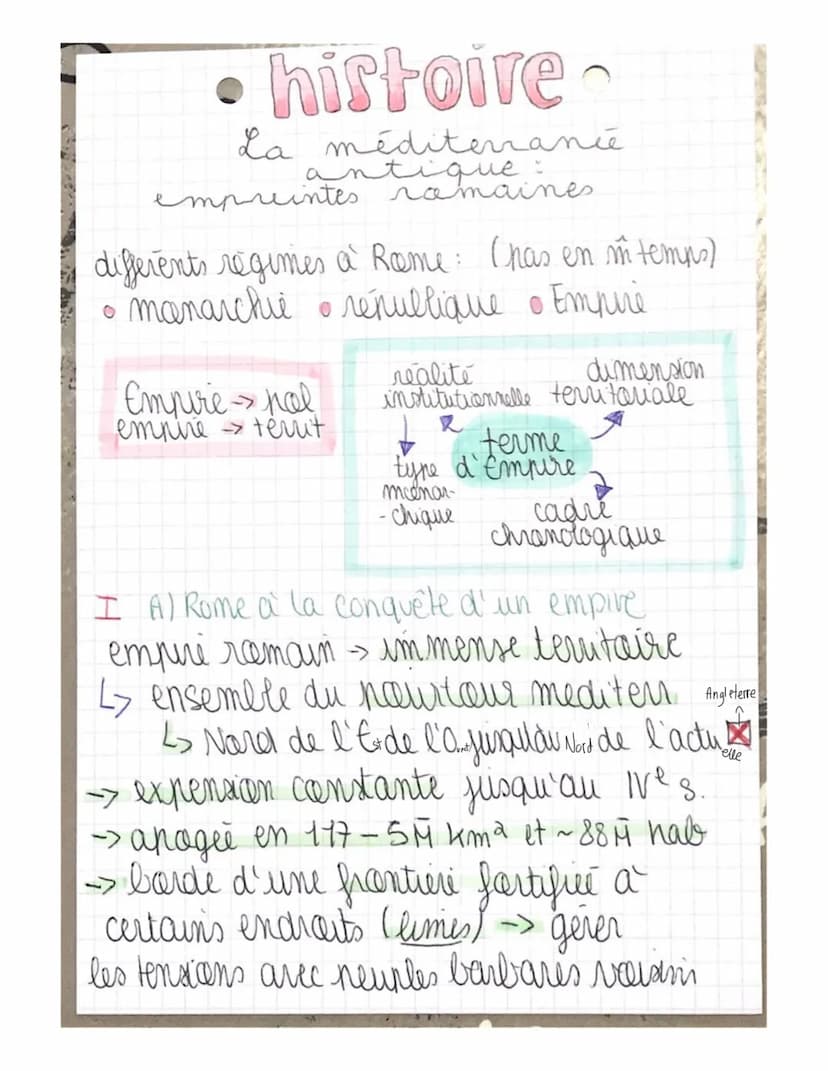 histoire
La méditerranée
antique :
empreintes romaines
différents régimes à Rome : (pas en m̂ temps)
• monarchie • république • Empire
Empire → pol
empire → territ
réalité
institutionnelle
dimension
territoriale
terme
d'Empire
type
monar-
-chique
cadre
chronologique
I A) Rome à la conquête d'un empire
empire romain → immense territoire
↳ ensemble du pourtour mediterr
Angleterre
↑
↳ Nord de l'Est de l'O jusqu'au Nord de l'actuelle
→ expension constante jusqu'au IVe s.
→ apogée en 117 – 5M̄ km² et ~ 88M̄ hab
→ bordé d'une frontière fortifiée à
certains endroits (limes) → gérer
les tensions avec peuples barbares voisin